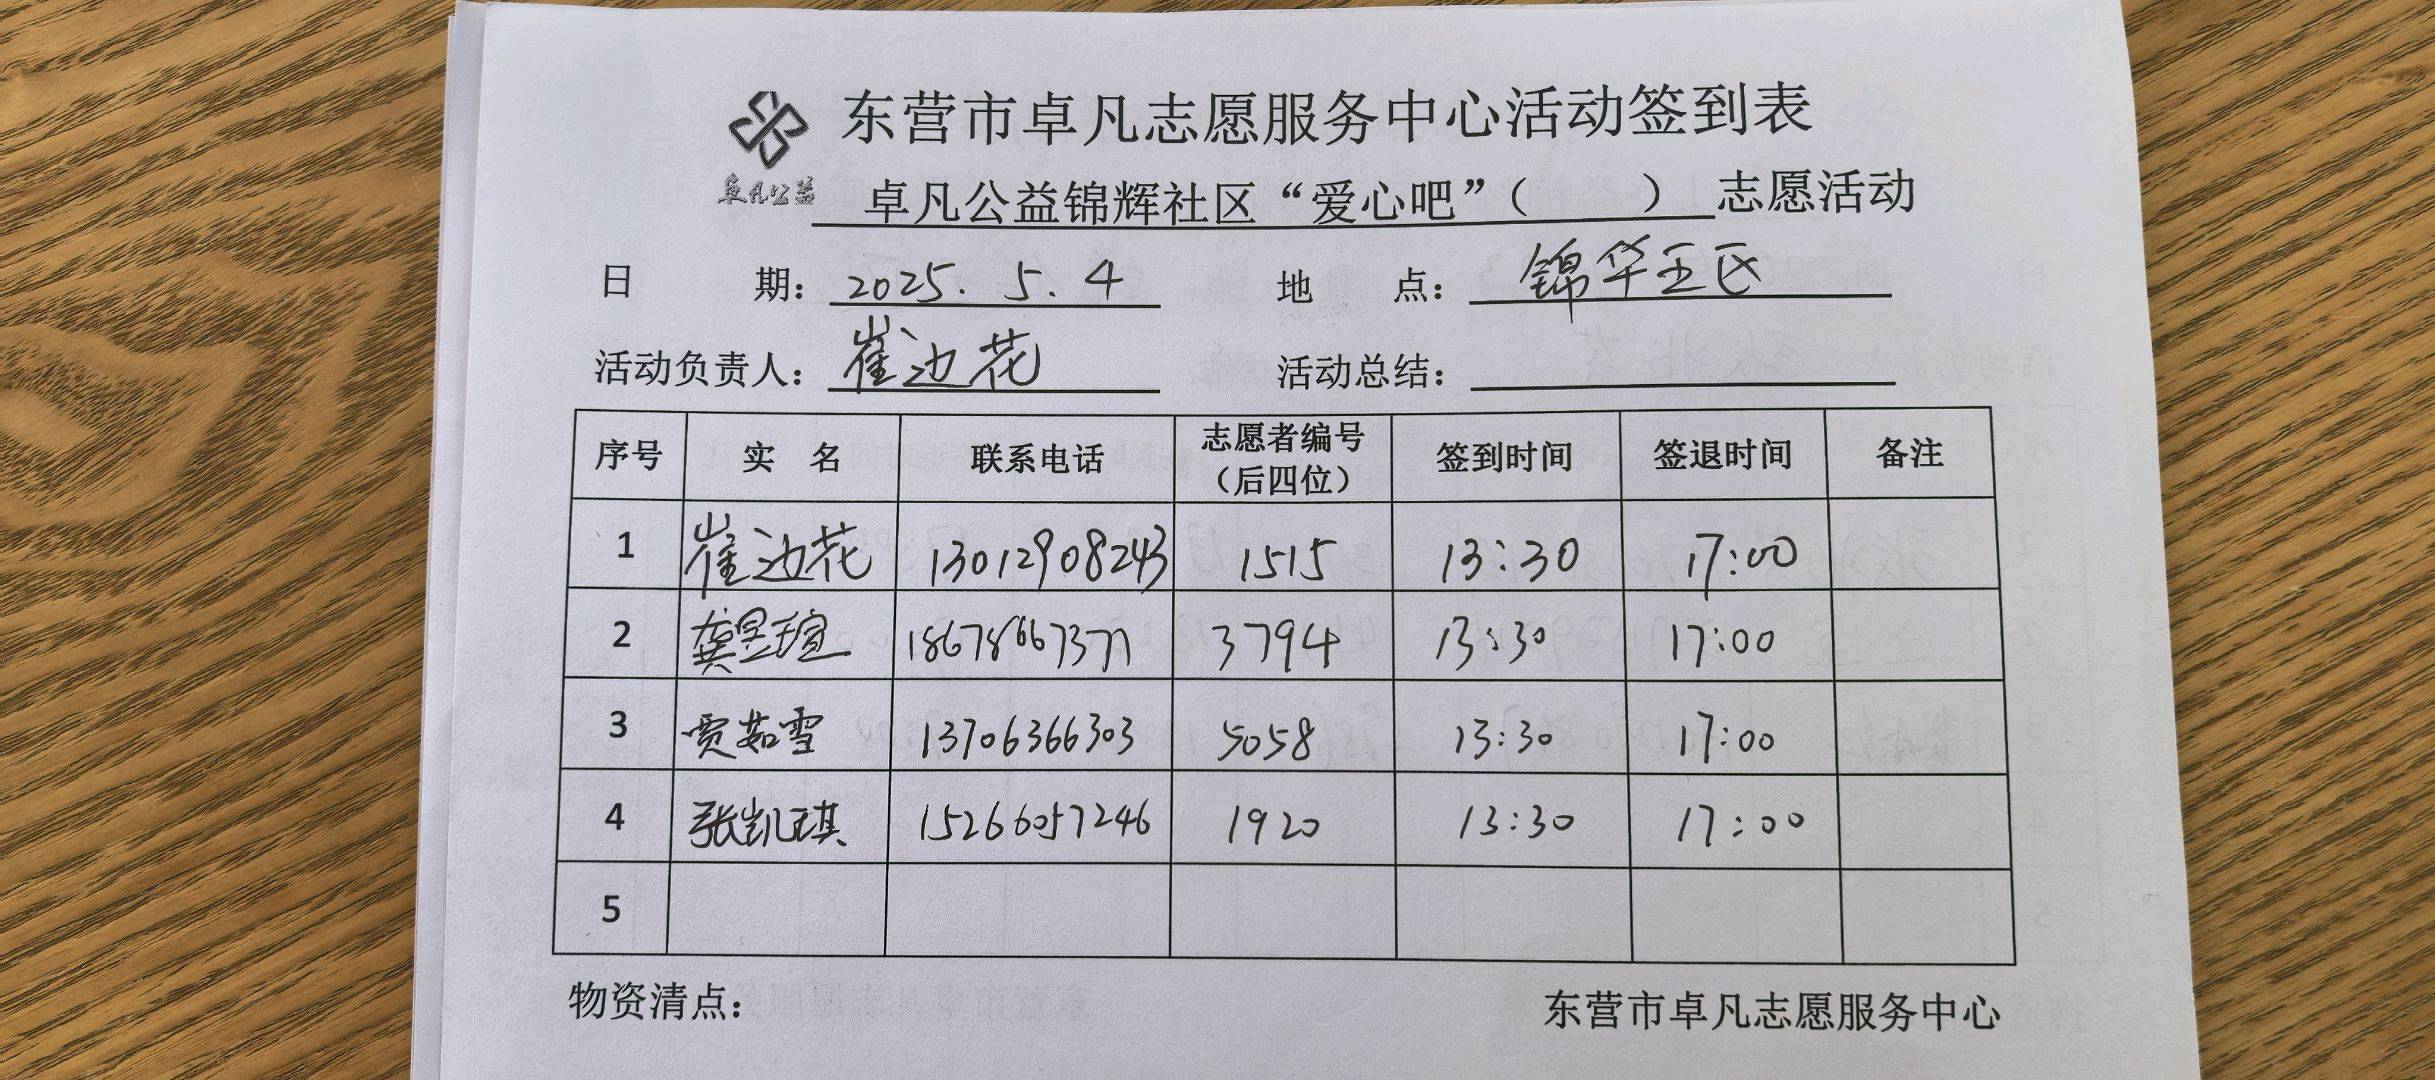 东营市卓凡志愿服务中心活动签到表
卓凡公益
卓凡公益锦辉社区“爱心吧”（　　）志愿活动
日　期：2025.5.4　地　点：锦华五区
活动负责人：崔边花　活动总结：
序号　实　名　联系电话　志愿者编号（后四位）　签到时间　签退时间　备注
1　崔边花　13012908243　1515　13:30　17:00
2　龚昱瑄　18678667377　3794　13:30　17:00
3　贾茹雪　13706366303　5058　13:30　17:00
4　张凯琪　15266057246　1920　13:30　17:00
5
物资清点：　东营市卓凡志愿服务中心